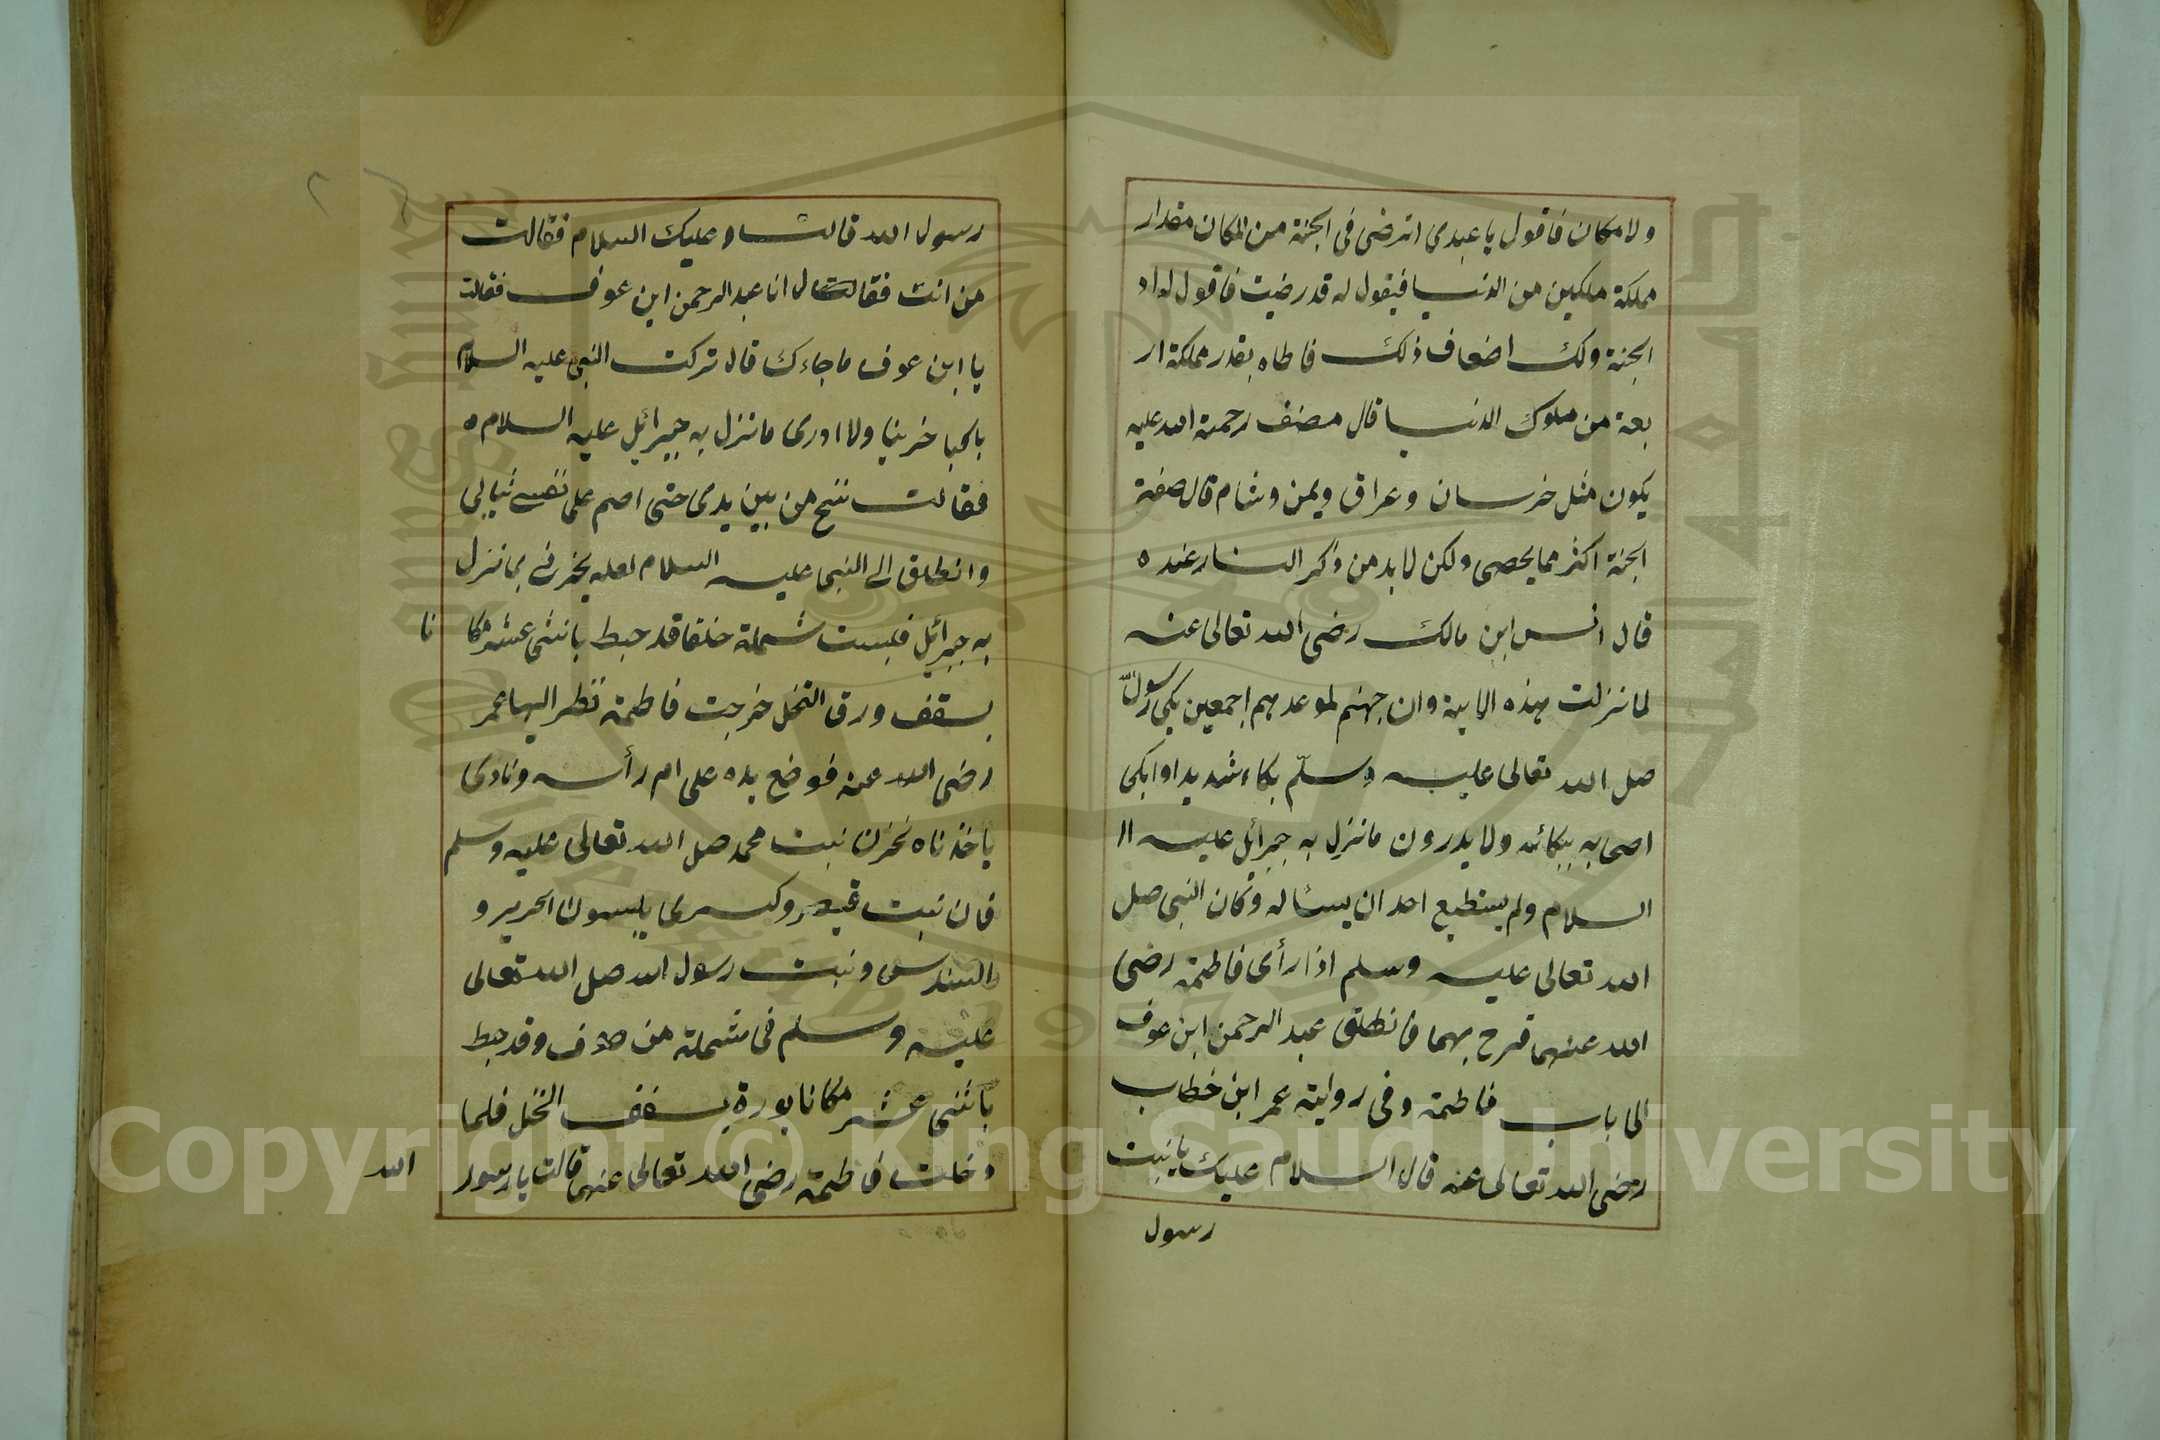 ولا مكان فاقول يا عبدى اترضى فى الجنة من المكان مقدار
مملكة ملكين من الدنيا فيقول له قد رضيت فاقول لواد
الجنة ولك اضعاف ذلك فاطاه بقدر مملكة ار
بعة من ملوك الدنيا قال مصنف رحمة الله عليه
يكون مثل خرسان وعراق ويمن وشام قال صفة
الجنة اكثر مما يحصى ولكن لابد من ذكر النار عنده
قال انس ابن مالك رضى الله تعالى عنه
لما نزلت هذه الاية وان جهنم لموعدهم اجمعين بكى رسول الله
صل الله تعالى عليه وسلّم بكاء شديدا وابكى
اصحابه ببكائه ولا يدرون ما نزل به جبرائل عليه ال
السلام ولم يستطيع احد ان يسئاله وكان النبى صل
الله تعالى عليه وسلم اذا رأى فاطمة رضى
الله عنهما فرح بهما فانطلق عبد الرحمن ابن عوف
الى باب فاطمة وفى رواية عمر ابن خطاب
رضى الله تعالى عنه قال السلام عليك يا بنت
رسول
رسول الله قالت وعليك السلام فقالت
من انت فقال انا عبد الرحمن ابن عوف فقالت
يا ابن عوف ما جاءك قال تركت النبى عليه السلام
باكيا حزينا ولا ادرى ما نزل به جبرائل عليه السلام ه
فقالت تنح من بين يدى حتى اضم على نفسى ثيابى
وانطلق الى النبى عليه السلام لعله يخبرنى بما نزل
به جبرائل فلبست شملة خلقا قد حيط باثنى عشر مكا نا
بسقف ورق النخل خرجت فاطمة نظر اليها عمر
رضى الله عنه فوضع يده على ام رأسه ونادى
يا حزناه نحزن بنت محمد صل الله تعالى عليه وسلم
فان بنت قيصر وكسرى يلبسون الحرير و
والسندس وبنت رسول الله صل الله تعالى
عليه وسلم فى شملة من صوف وقد حيط
باثنى عشر مكانا بورق سقف النخل فلما
دخلت فاطمة رضى الله تعالى عنها قالت يا رسول
الله
Copyright © King Saud University